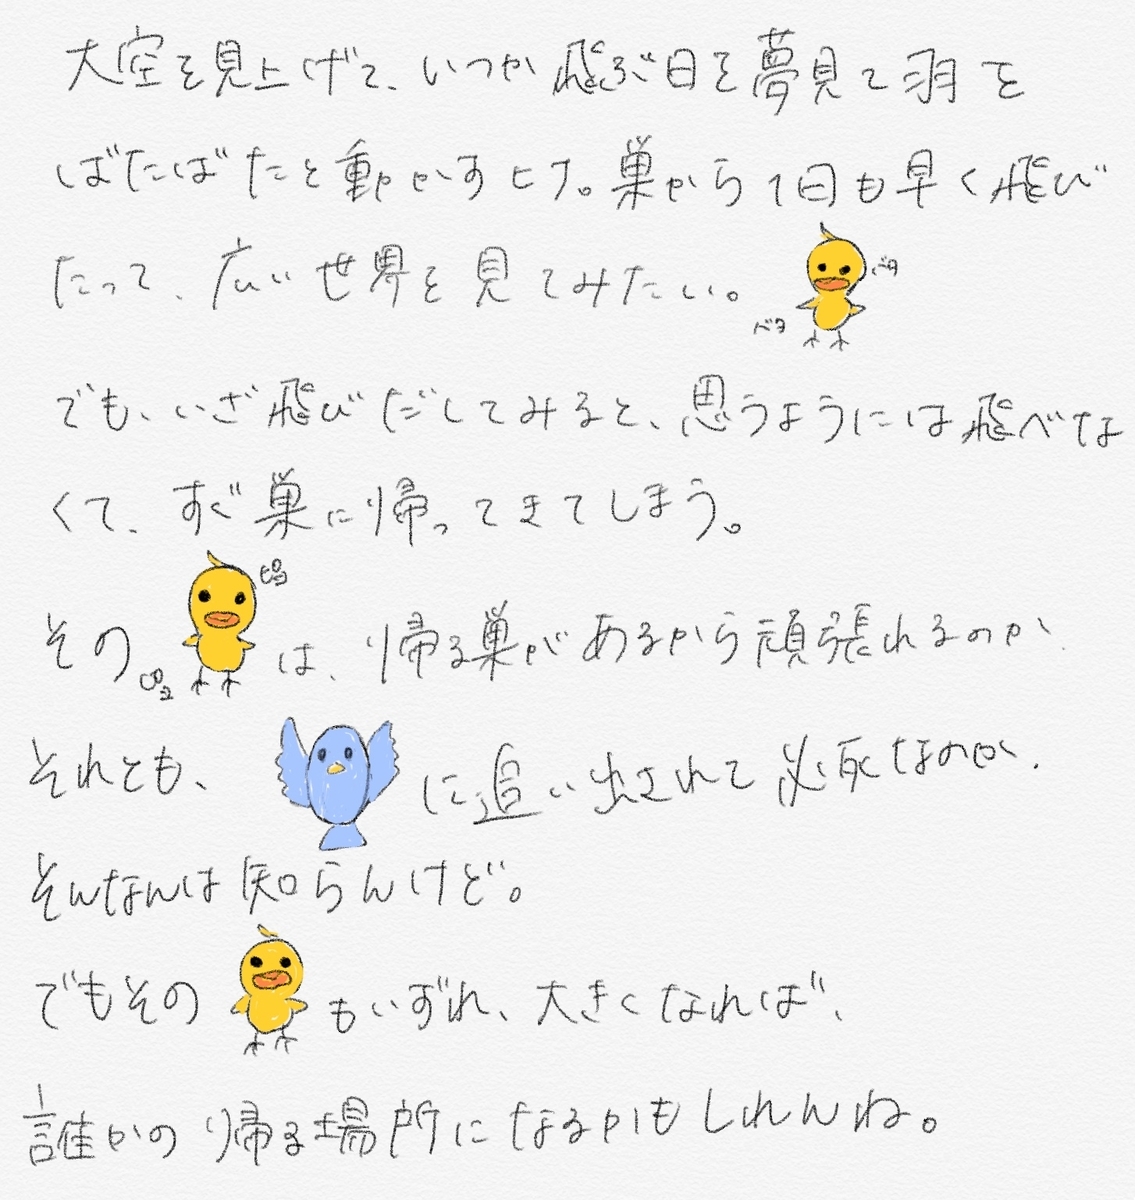 大空を見上げて、いつか飛ぶ日を夢見て羽を
ばたばたと動かすヒナ。巣から1日も早く飛び
たって、広い世界を見てみたい。
バタ
バタ
でも、いざ飛びだしてみると、思うようには飛べな
くて、すぐ巣に帰ってきてしまう。
ピヨ
その は、帰る巣があるから頑張れるのか、
ピヨ
それとも、 に追い出されて必死なのか、
そんなんは知らんけど。
でもその もいずれ、大きくなれば、
誰かの帰る場所になるかもしれんね。